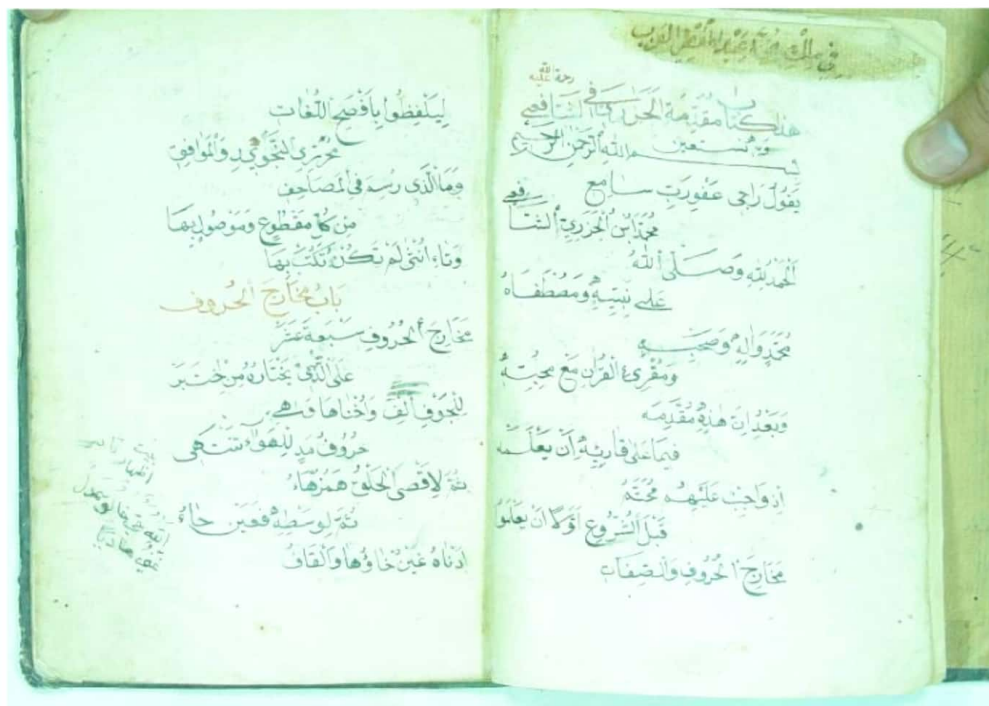 في ملك
رحمة الله عليه
هذا كتاب مقدمة الجزري في الشافعي
وبه نستعين
بسم الله الرحمن الرحيم
يَقُولُ رَاجِى عَفْوِ رَبٍّ سامع
مُحَمَّدُ ابْنُ الْجَزَرِيِّ الشافعي
اَلْحَمْدُ لِلّٰهِ وَصَلَّى اللهُ
عَلَى نَبِيِّهِ وَمُصْطَفَاهُ
مُحَمَّدٍ وَالِهِ وَصَحْبِهِ
وَمُقْرِئِ الْقُرْانِ مَعْ مُحِبِّهِ
وَبَعْدُ اِنَّ هٰذِهِ مُقَدِّمَه
فِيمَا عَلَى قَارِئِهِ اَنْ يَعْلَمَه
اِذْ وَاجِبٌ عَلَيْهِمُ مُحَتَّمُ
قَبْلَ الشُّرُوعِ اَوَّلًا اَنْ يَعْلَمُوا
مَخَارِجَ الْحُرُوفِ وَالصِّفَاتِ
لِيَلْفِظُوا بِاَفْصَحِ اللُّغَاتِ
مُحَرِّرِى التَّجْوِيدِ وَالْمَوَاقِفِ
وَمَا الَّذِى رُسِمَ فِى الْمَصَاحِفِ
مِنْ كُلِّ مَقْطُوعٍ وَمَوْصُولٍ بِهَا
وَتَاءِ اُنْثَى لَمْ تَكُنْ تُكْتَبْ بِهَا
بَابُ مَخَارِجِ الْحُرُوفِ
مَخَارِجُ الْحُرُوفِ سَبْعَةَ عَشَرْ
عَلَى الَّذِى يَخْتَارُهُ مَنِ اخْتَبَرَ
لِلْجَوْفِ اَلِفٌ وَاُخْتَاهَا وَهِي
حُرُوفُ مَدٍّ لِلْهَوَاءِ تَنْتَهِى
ثُمَّ لِاَقْصَى الْحَلْقِ هَمْزٌ هَاءُ
ثُمَّ لِوَسْطِهِ فَعَيْنٌ حَاءُ
اَدْنَاهُ غَيْنٌ خَاؤُهَا وَالْقَافُ